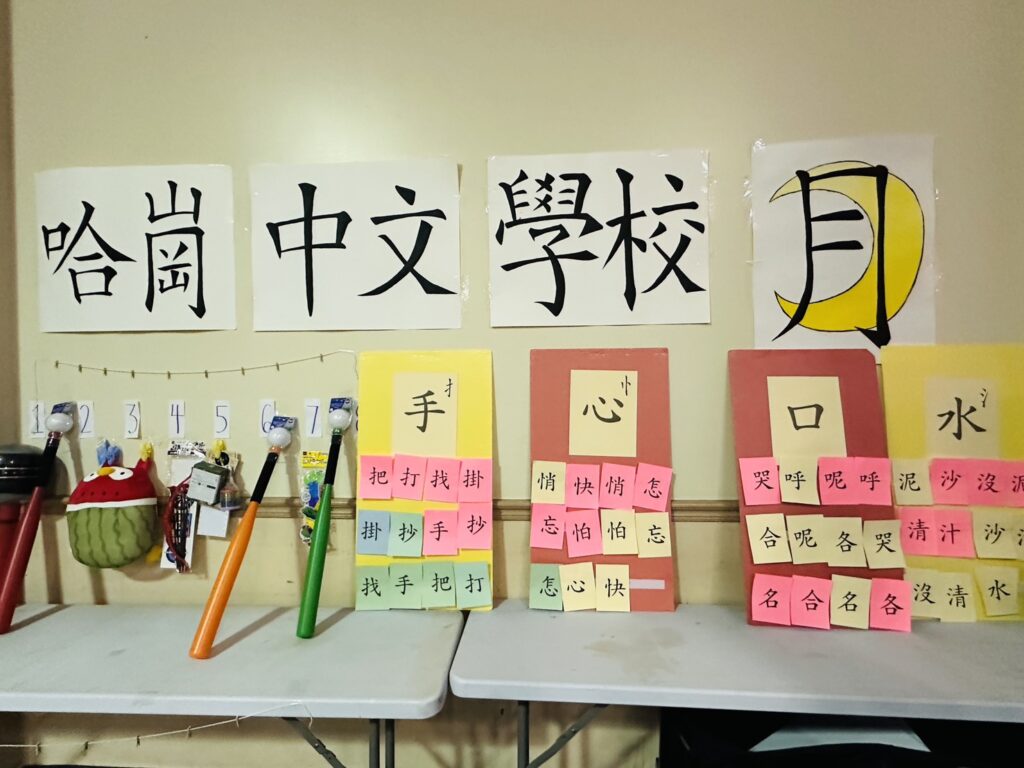 哈崗
中文
學校
月
1 2 3 4 5 6 7 8
手 扌
把 打 找 掛
掛 抄 手 抄
找 手 把 打
心 忄
悄 快 悄 怎
忘 怕 怕 忘
怎 心 快
口
哭 呼 呢 呼
合 呢 各 哭
名 合 名 各
水 氵
泥 沙 沒 泥
清 汁 沙
沒 清 水